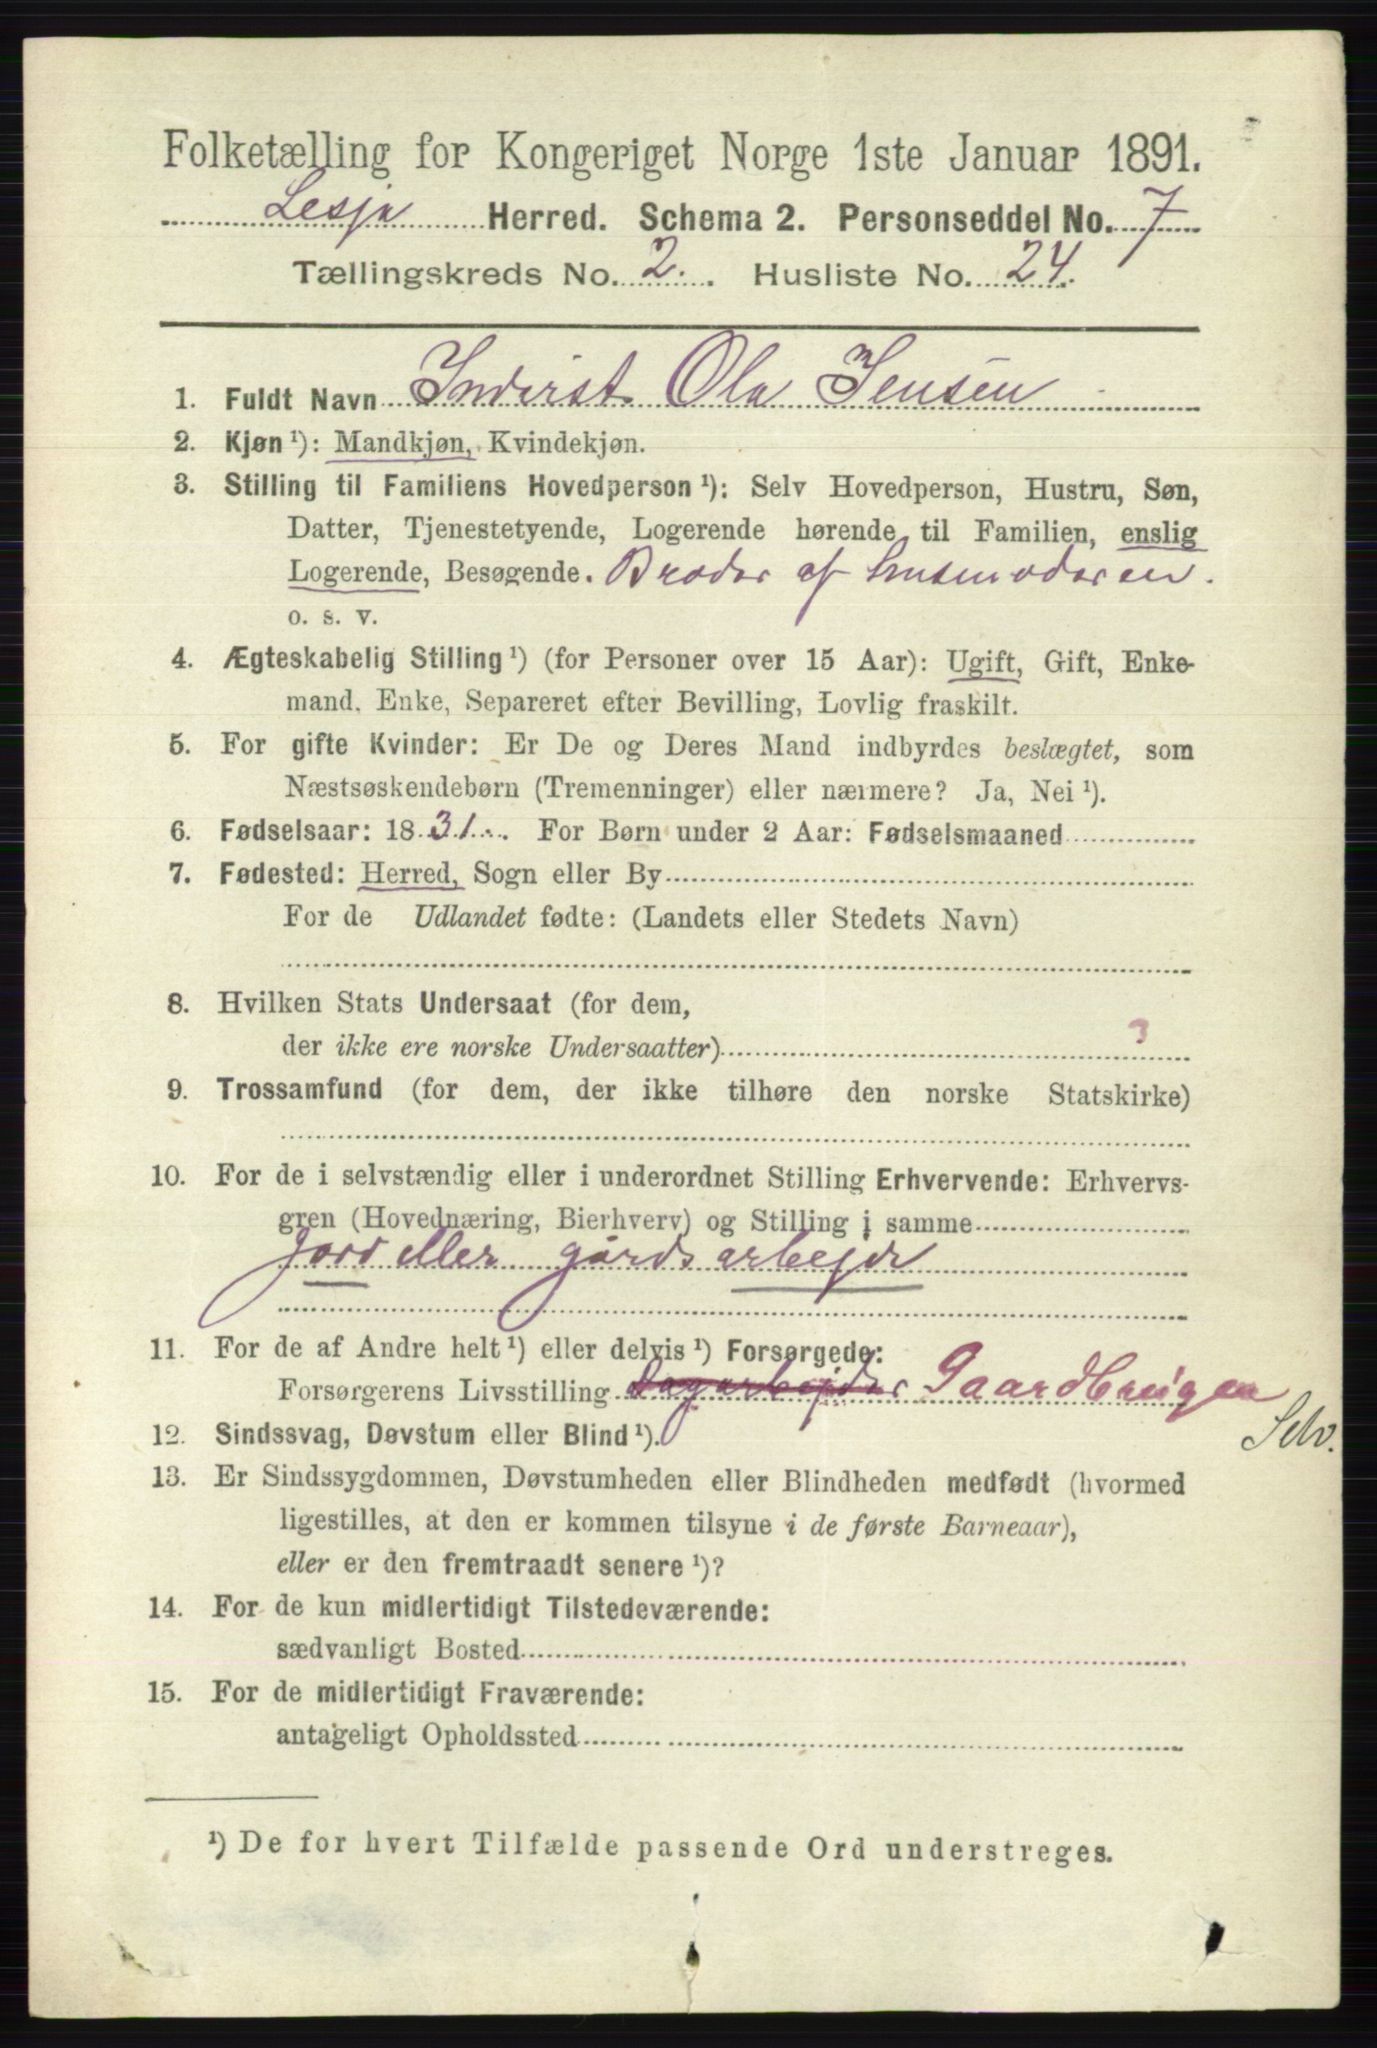 Folketælling for Kongeriget Norge 1ste Januar 1891.
Lesja Herred. Schema 2. Personseddel No. 7
Tællingskreds No. 2. Husliste No. 24.
1. Fuldt Navn Inderst Ola Jensen
2. Kjøn ¹): Mandkjøn, Kvindekjøn.
3. Stilling til Familiens Hovedperson ¹): Selv Hovedperson, Hustru, Søn,
Datter, Tjenestetyende, Logerende hørende til Familien, enslig
Logerende, Besøgende. Broder af husmoderen.
o. s. v.
4. Ægteskabelig Stilling ¹) (for Personer over 15 Aar): Ugift, Gift, Enke-
mand, Enke, Separeret efter Bevilling, Lovlig fraskilt.
5. For gifte Kvinder: Er De og Deres Mand indbyrdes beslægtet, som
Næstsøskendebørn (Tremenninger) eller nærmere? Ja, Nei ¹).
6. Fødselsaar: 1831. For Børn under 2 Aar: Fødselsmaaned
7. Fødested: Herred, Sogn eller By
For de Udlandet fødte: (Landets eller Stedets Navn)
8. Hvilken Stats Undersaat (for dem,
der ikke ere norske Undersaatter) 3
9. Trossamfund (for dem, der ikke tilhøre den norske Statskirke)
10. For de i selvstændig eller i underordnet Stilling Erhvervende: Erhvervs-
gren (Hovednæring, Bierhverv) og Stilling i samme
Jord eller gårdsarbejde
11. For de af Andre helt ¹) eller delvis ¹) Forsørgede:
Forsørgerens Livsstilling Dagarbejder Gaardbrugen
Selv.
12. Sindssvag, Døvstum eller Blind ¹).
13. Er Sindssygdommen, Døvstumheden eller Blindheden medfødt (hvormed
ligestilles, at den er kommen tilsyne i de første Barneaar),
eller er den fremtraadt senere ¹)?
14. For de kun midlertidigt Tilstedeværende:
sædvanligt Bosted
15. For de midlertidigt Fraværende:
antageligt Opholdssted
¹) De for hvert Tilfælde passende Ord understreges.